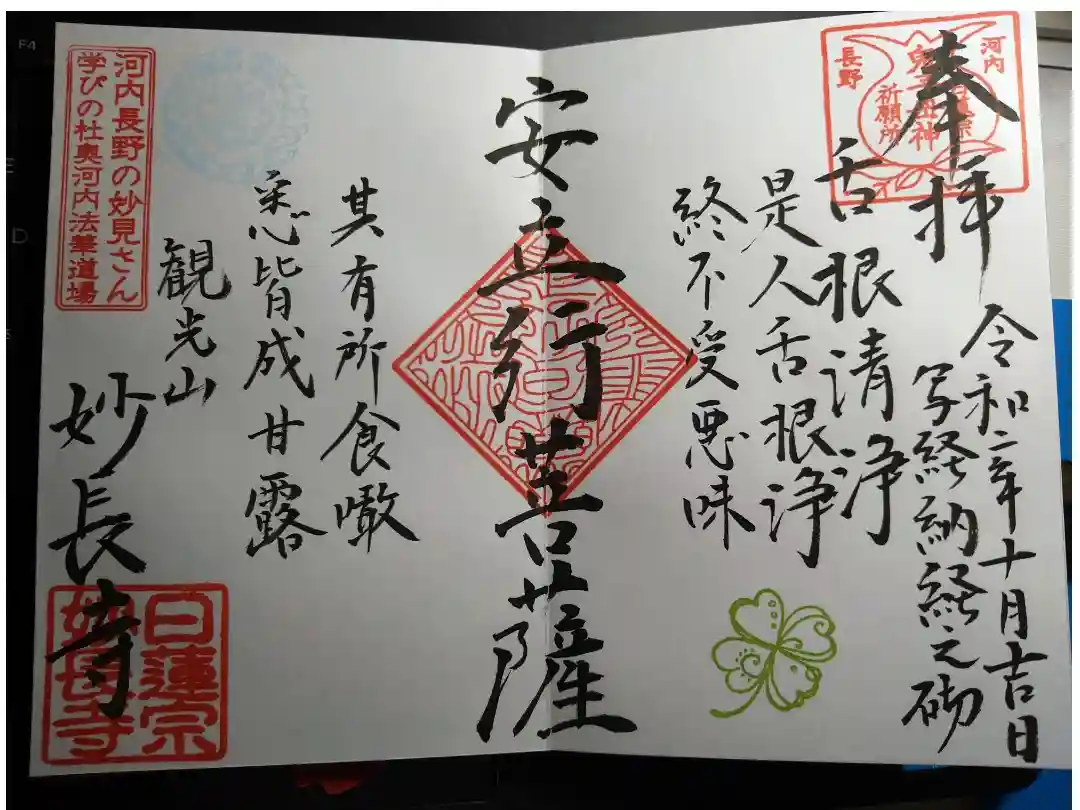 奉拝
令和二年十月吉日
写経納経之砌
舌根清浄
是人舌根浄
終不受悪味
安立行菩薩
其有所食噉
悉皆成甘露
観光山
妙長寺
河内
長野
鬼子母神
日蓮宗
祈願所
河内長野の妙見さん
学びの杜奥河内法華道場
日蓮宗
妙長寺
F4